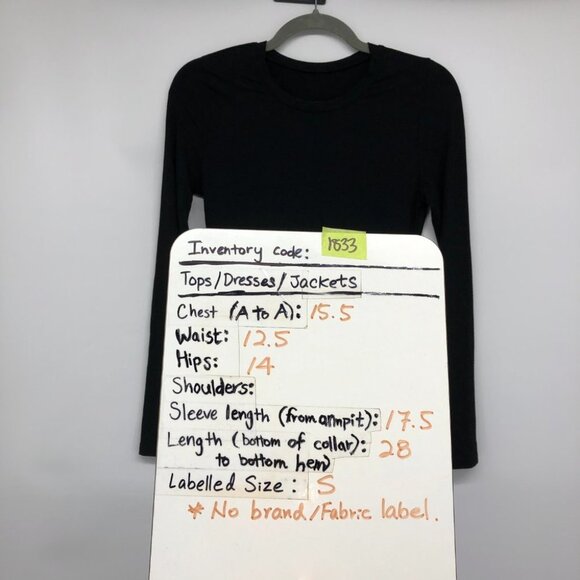 Inventory code: 1833
Tops/Dresses/Jackets
Chest (A to A): 15.5
Waist: 12.5
Hips: 14
Shoulders:
Sleeve length (from armpit): 17.5
Length (bottom of collar): 28
to bottom hem)
Labelled Size: S
* No brand/Fabric label.